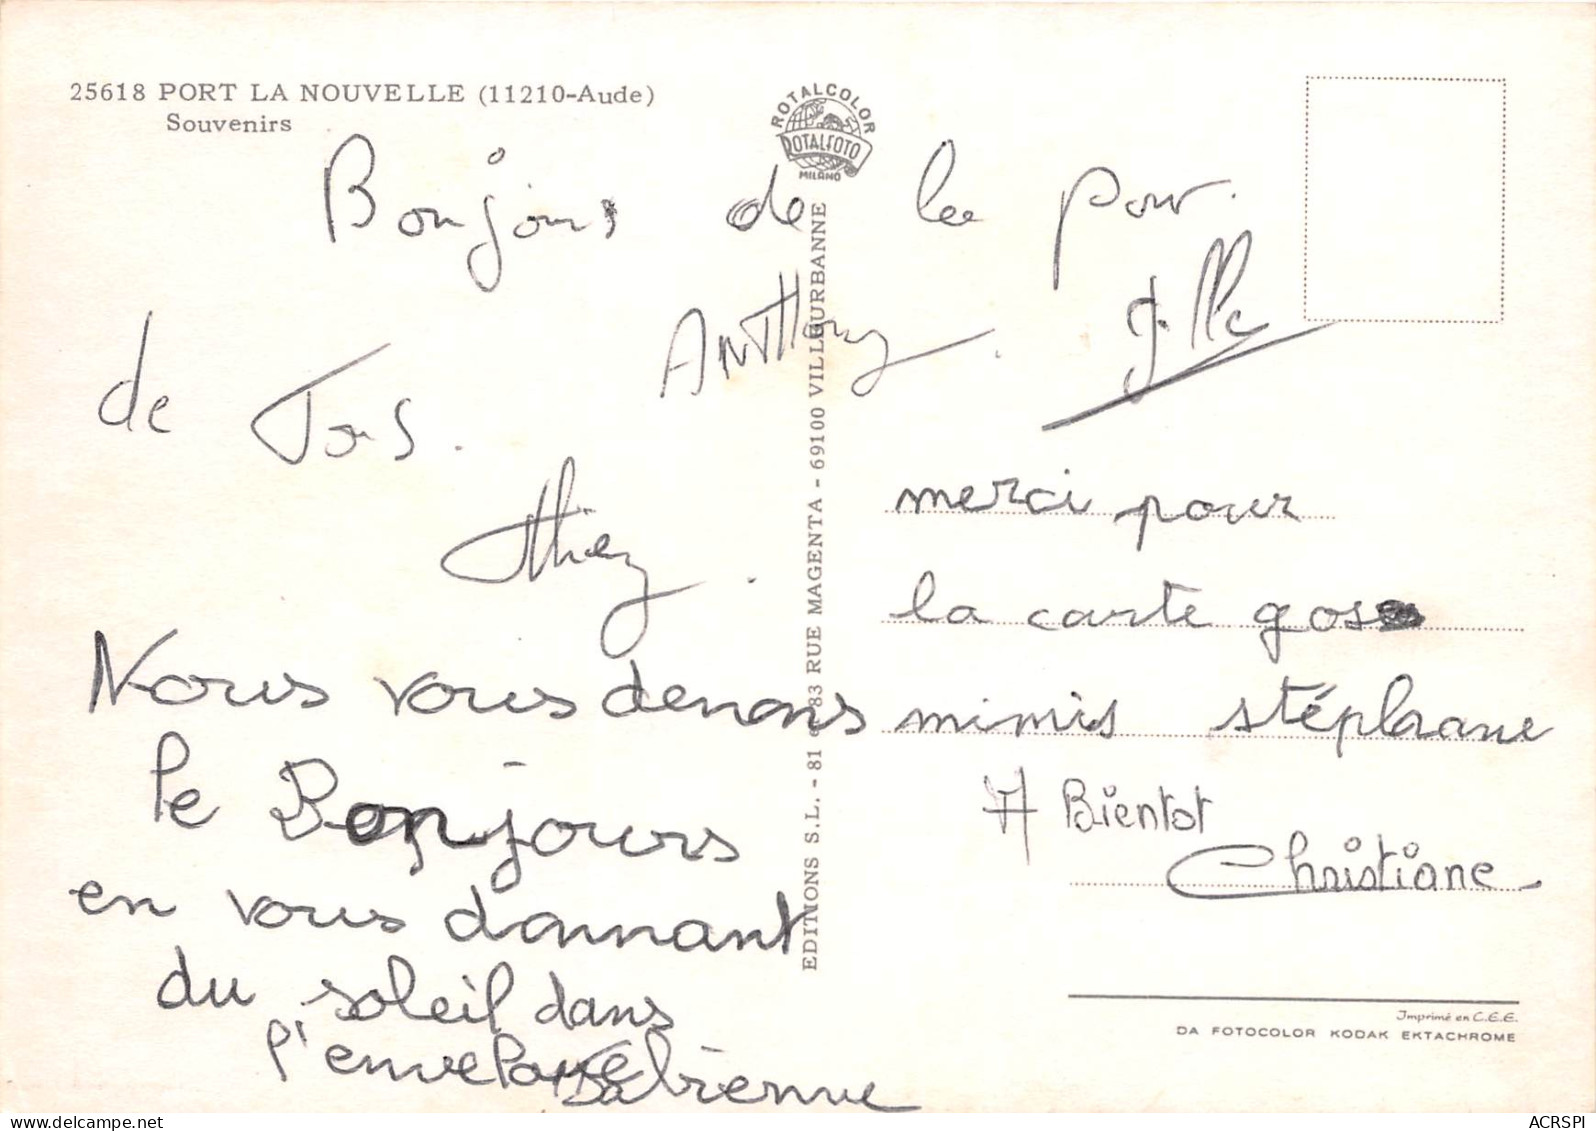 25618 PORT LA NOUVELLE (11210-Aude)
Souvenirs
ROTALCOLOR
ROTALFOTO
MILANO
Bonjour de la par
de Tous.
ANTHony
EDITIONS S.L. - 81 83 RUE MAGENTA - 69100 VILLEURBANNE
Nous vous denons
le Bonjours
en vous donnant
du soleil dans
l'enveloppe
Fabienne
merci pour
la carte gos
mimis stéphane
A Bientot
Christiane
Imprimé en C.E.E.
DA FOTOCOLOR KODAK EKTACHROME
ACRSPI